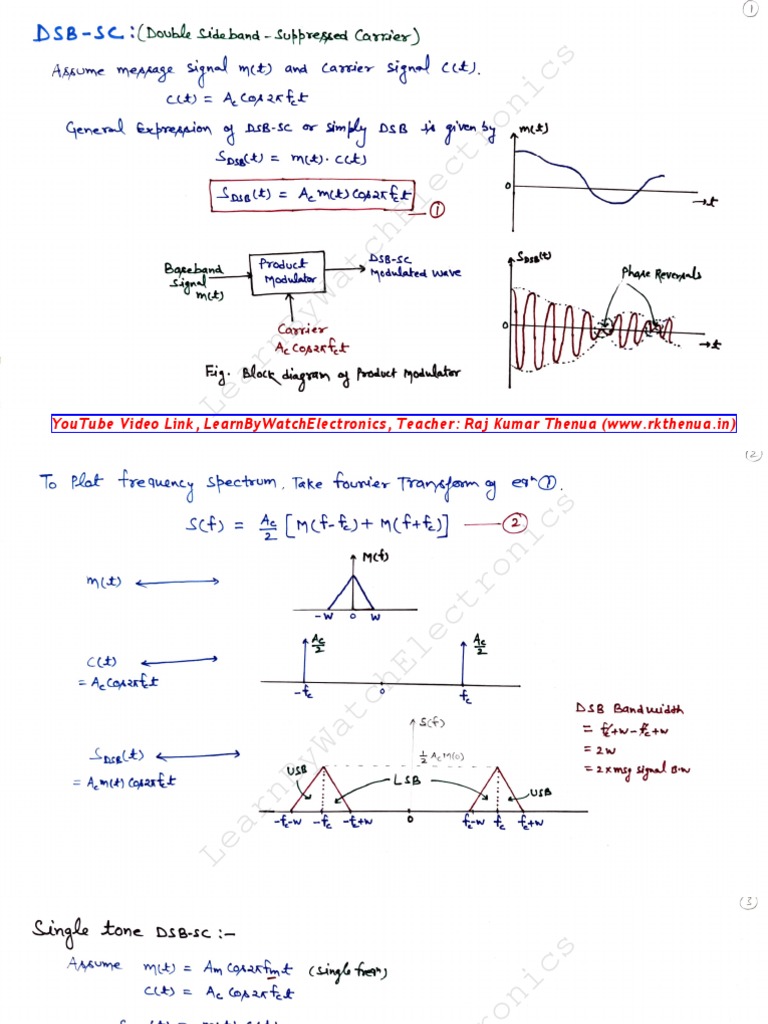 (1)
DSB-SC: (Double Sideband - Suppressed Carrier)
Assume message signal m(t) and carrier signal c(t).
c(t) = Ac Cos2πfct
General Expression of DSB-SC or simply DSB is given by
SDSB(t) = m(t)·c(t)
SDSB(t) = Ac m(t) Cos2πfct
①
m(t)
0
→t
Baseband Signal m(t)
Product Modulator
DSB-SC Modulated wave
Carrier
Ac Cos2πfct
Fig. Block diagram of Product Modulator
SDSB(t)
Phase Reversals
0
→t
LearnByWatchElectronics
YouTube Video Link, LearnByWatchElectronics, Teacher: Raj Kumar Thenua (www.rkthenua.in)
(2)
To Plot frequency spectrum, Take fourier Transform of eqⁿ ①.
S(f) = Ac/2 [M(f-fc) + M(f+fc)] — ②
m(t)
M(f)
-W 0 W
c(t)
= Ac Cos2πfct
Ac/2 Ac/2
-fc 0 fc
SDSB(t)
= Ac m(t) Cos2πfct
S(f)
½ Ac M(0)
USB LSB USB
-fc-w -fc -fc+w 0 fc-w fc fc+w
DSB Bandwidth
= fc+w-fc+w
= 2w
= 2x msg signal B.w
LearnByWatchElectronics
(3)
Single tone DSB-SC :-
Assume m(t) = Am Cos2πfmt (single freqⁿ)
c(t) = Ac Cos2πfct